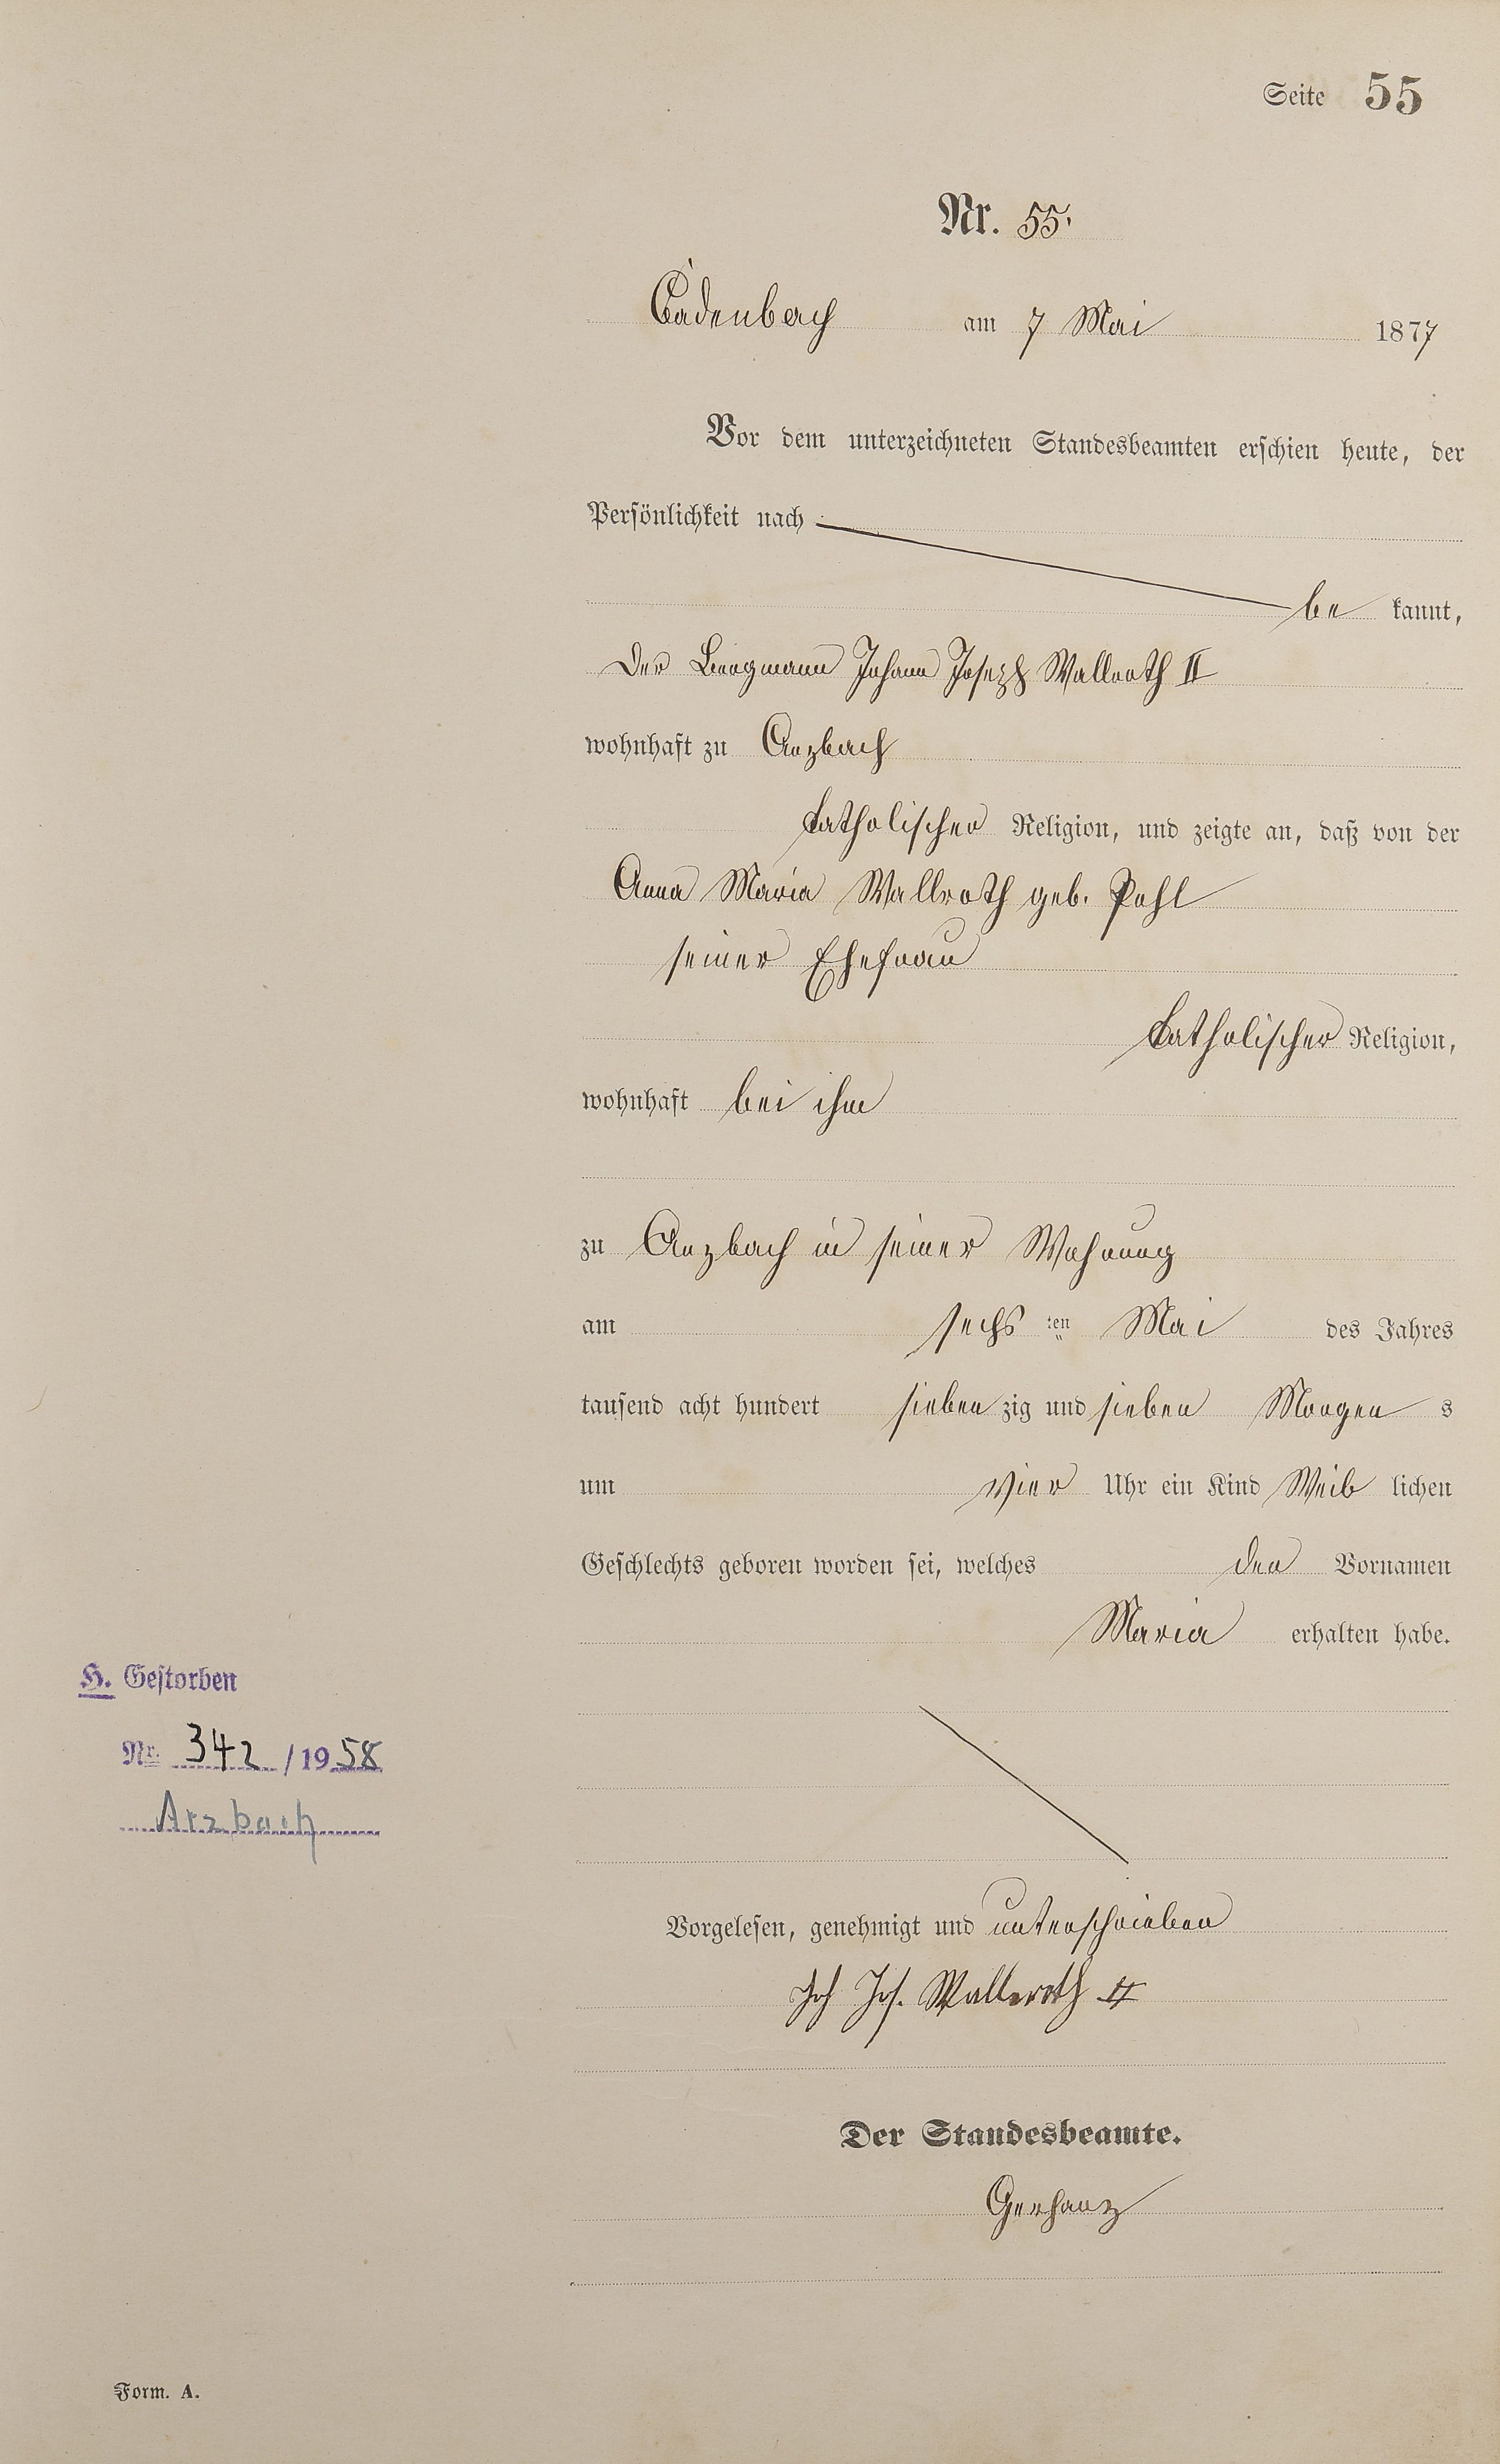 Seite 55
Nr. 55.
Cadenbach am 7 Mai 1877
Vor dem unterzeichneten Standesbeamten erschien heute, der
Persönlichkeit nach
be kannt,
Der Bergmann Johann Joseph Wallroth II
wohnhaft zu Arzbach
katholischer Religion, und zeigte an, daß von der
Anna Maria Wallroth geb. Pohl
seiner Ehefrau
katholischer Religion,
wohnhaft bei ihm
zu Arzbach in seiner Wohnung
am sechs ten Mai des Jahres
tausend acht hundert sieben zig und sieben Morgen s
um vier Uhr ein Kind Weib lichen
Geschlechts geboren worden sei, welches den Vornamen
Maria erhalten habe.
H. Gestorben
Nr. 342 / 19 58
Arzbach
Vorgelesen, genehmigt und unterschrieben
Joh Jos. Walleroth II
Der Standesbeamte.
Gerhanz
Form. A.